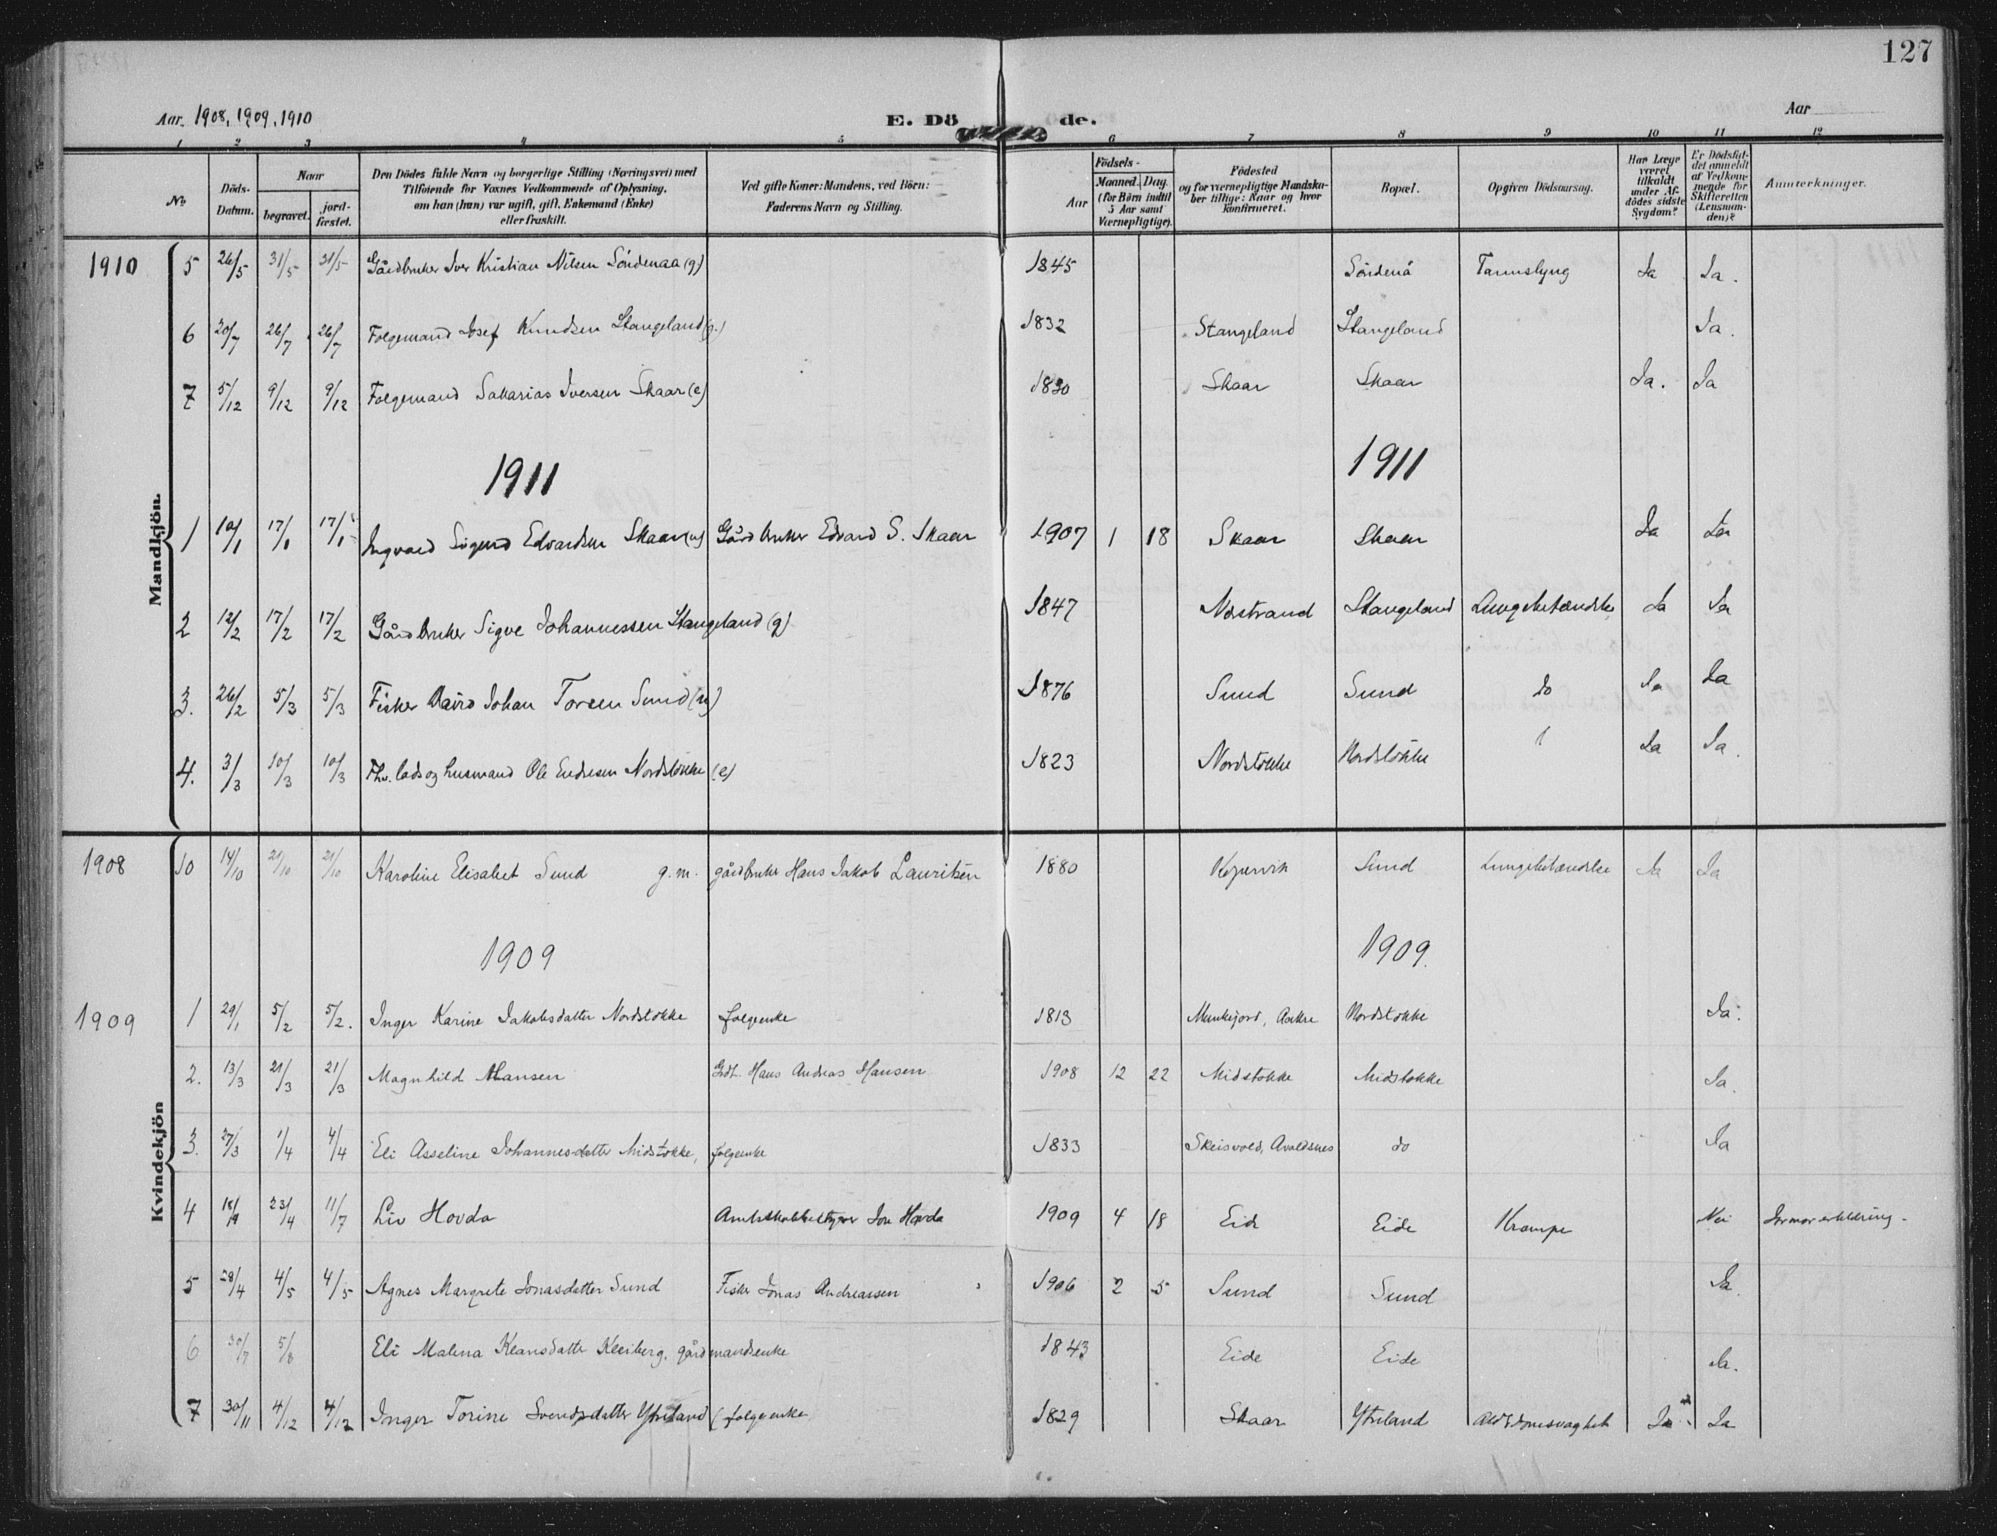 127
Aar 1908, 1909, 1910
E. Dö de.
Aar
1 2 3 4 5 6 7 8 9 10 11 12
No
Döds-Datum.
Naar
begravet.
jord-fæstet.
Den Dödes fulde Navn og borgerlige Stilling (Næringsvei) med
Tilföiende for Voxnes Vedkommende af Oplysning,
om han (hun) var ugift, gift, Enkemand (Enke)
eller fraskilt.
Ved gifte Koner: Mandens, ved Börn:
Faderens Navn og Stilling.
Födsels-
Aar
Maaned. Dag
(for Börn indtil
5 Aar samt
Værnepligtige).
Födested
og for værnepligtige Mandska-
ber tillige: Naar og hvor
konfirmeret.
Bopæl.
Opgiven Dödsaarsag.
Har Læge
været
tilkaldt
under Af-
dödes sidste
Sygdom?
Er Dödsfal-
det anmeldt
af Vedkom-
mende for
Skifteretten
(Lensman-
den)?
Anmærkninger.
Mandkjön.
1910 5 26/5 31/5 31/5 Gårdbruker Iver Kristian Nilsen Söndenaa (g) 1845 Söndenå Tarmslyng Ja Ja.
6 20/7 26/7 26/7 Folgemand Josef Knudsen Stangeland (g.) 1832 Stangeland Stangeland Ja.
7 5/12 9/12 9/12 Folgemand Sakarias Iversen Skaar (e) 1830 Skaar Skaar Ja. Ja
1911 1911
1 10/1 17/1 17/1 Ingvald Sigurd Edvardsen Skaar (u) Gårdbruker Edvard S. Skaar 1907 1 18 Skaar Skaar Ja Ja
2 12/2 17/2 17/2 Gårdbruker Sigve Johannessen Stangeland (g) 1847 Nerstrand Stangeland Lungebetændelse Ja Ja
3. 26/2 5/3 5/3 Fisker David Johan Toreen Sund (u) 1876 Sund Sund do Ja Ja
4. 3/3 10/3 10/3 Fhv. lods og husmand Ole Endresen Nordstokke (e) 1823 Nordstokke Nordstokke Ja Ja.
Kvindekjön
1908 10 14/10 21/10 21/10 Karoline Elisabet Sund g.m. gårdbruker Hans Jakob Lauritsen 1880 Kopervik Sund Lungebetændelse Ja Ja
1909 1909.
1909 1 29/1 5/2 5/2. Inger Karine Jakobsdatter Nordstokke folgeenke 1813 Munkejord, Aakre Nordstokke Ja.
2. 13/3 21/3 21/3 Magnhild Hansen Gdb. Hans Andreas Hansen 1908 12 22 Midstokke Midstokke Ja.
3. 27/3 1/4 4/4 Eli Asseline Johannesdatter Midstokke, folgeenke 1833 Skeisvold, Avaldsnes do Ja
4 18/4 23/4 11/7 Liv Hovda Amtsskolebestyrer Jon Hovda 1909 4 18 Eide Eide Krampe Nei Jormorerklæring.
5 28/4 4/5 4/5 Agnes Margrete Jonasdatter Sund Fisker Jonas Andreassen 1906 2 5 Sund Sund Ja.
6 30/7 5/8 Eli Malena Klausdatter Kleiberg, gårdmandsenke 1843 Eide Eide Ja.
7 30/11 4/12 4/12 Inger Torine Svendsdatter Ytreland (folgeenke 1829 Skaar Ytreland Alderdomssvaghet Ja Ja